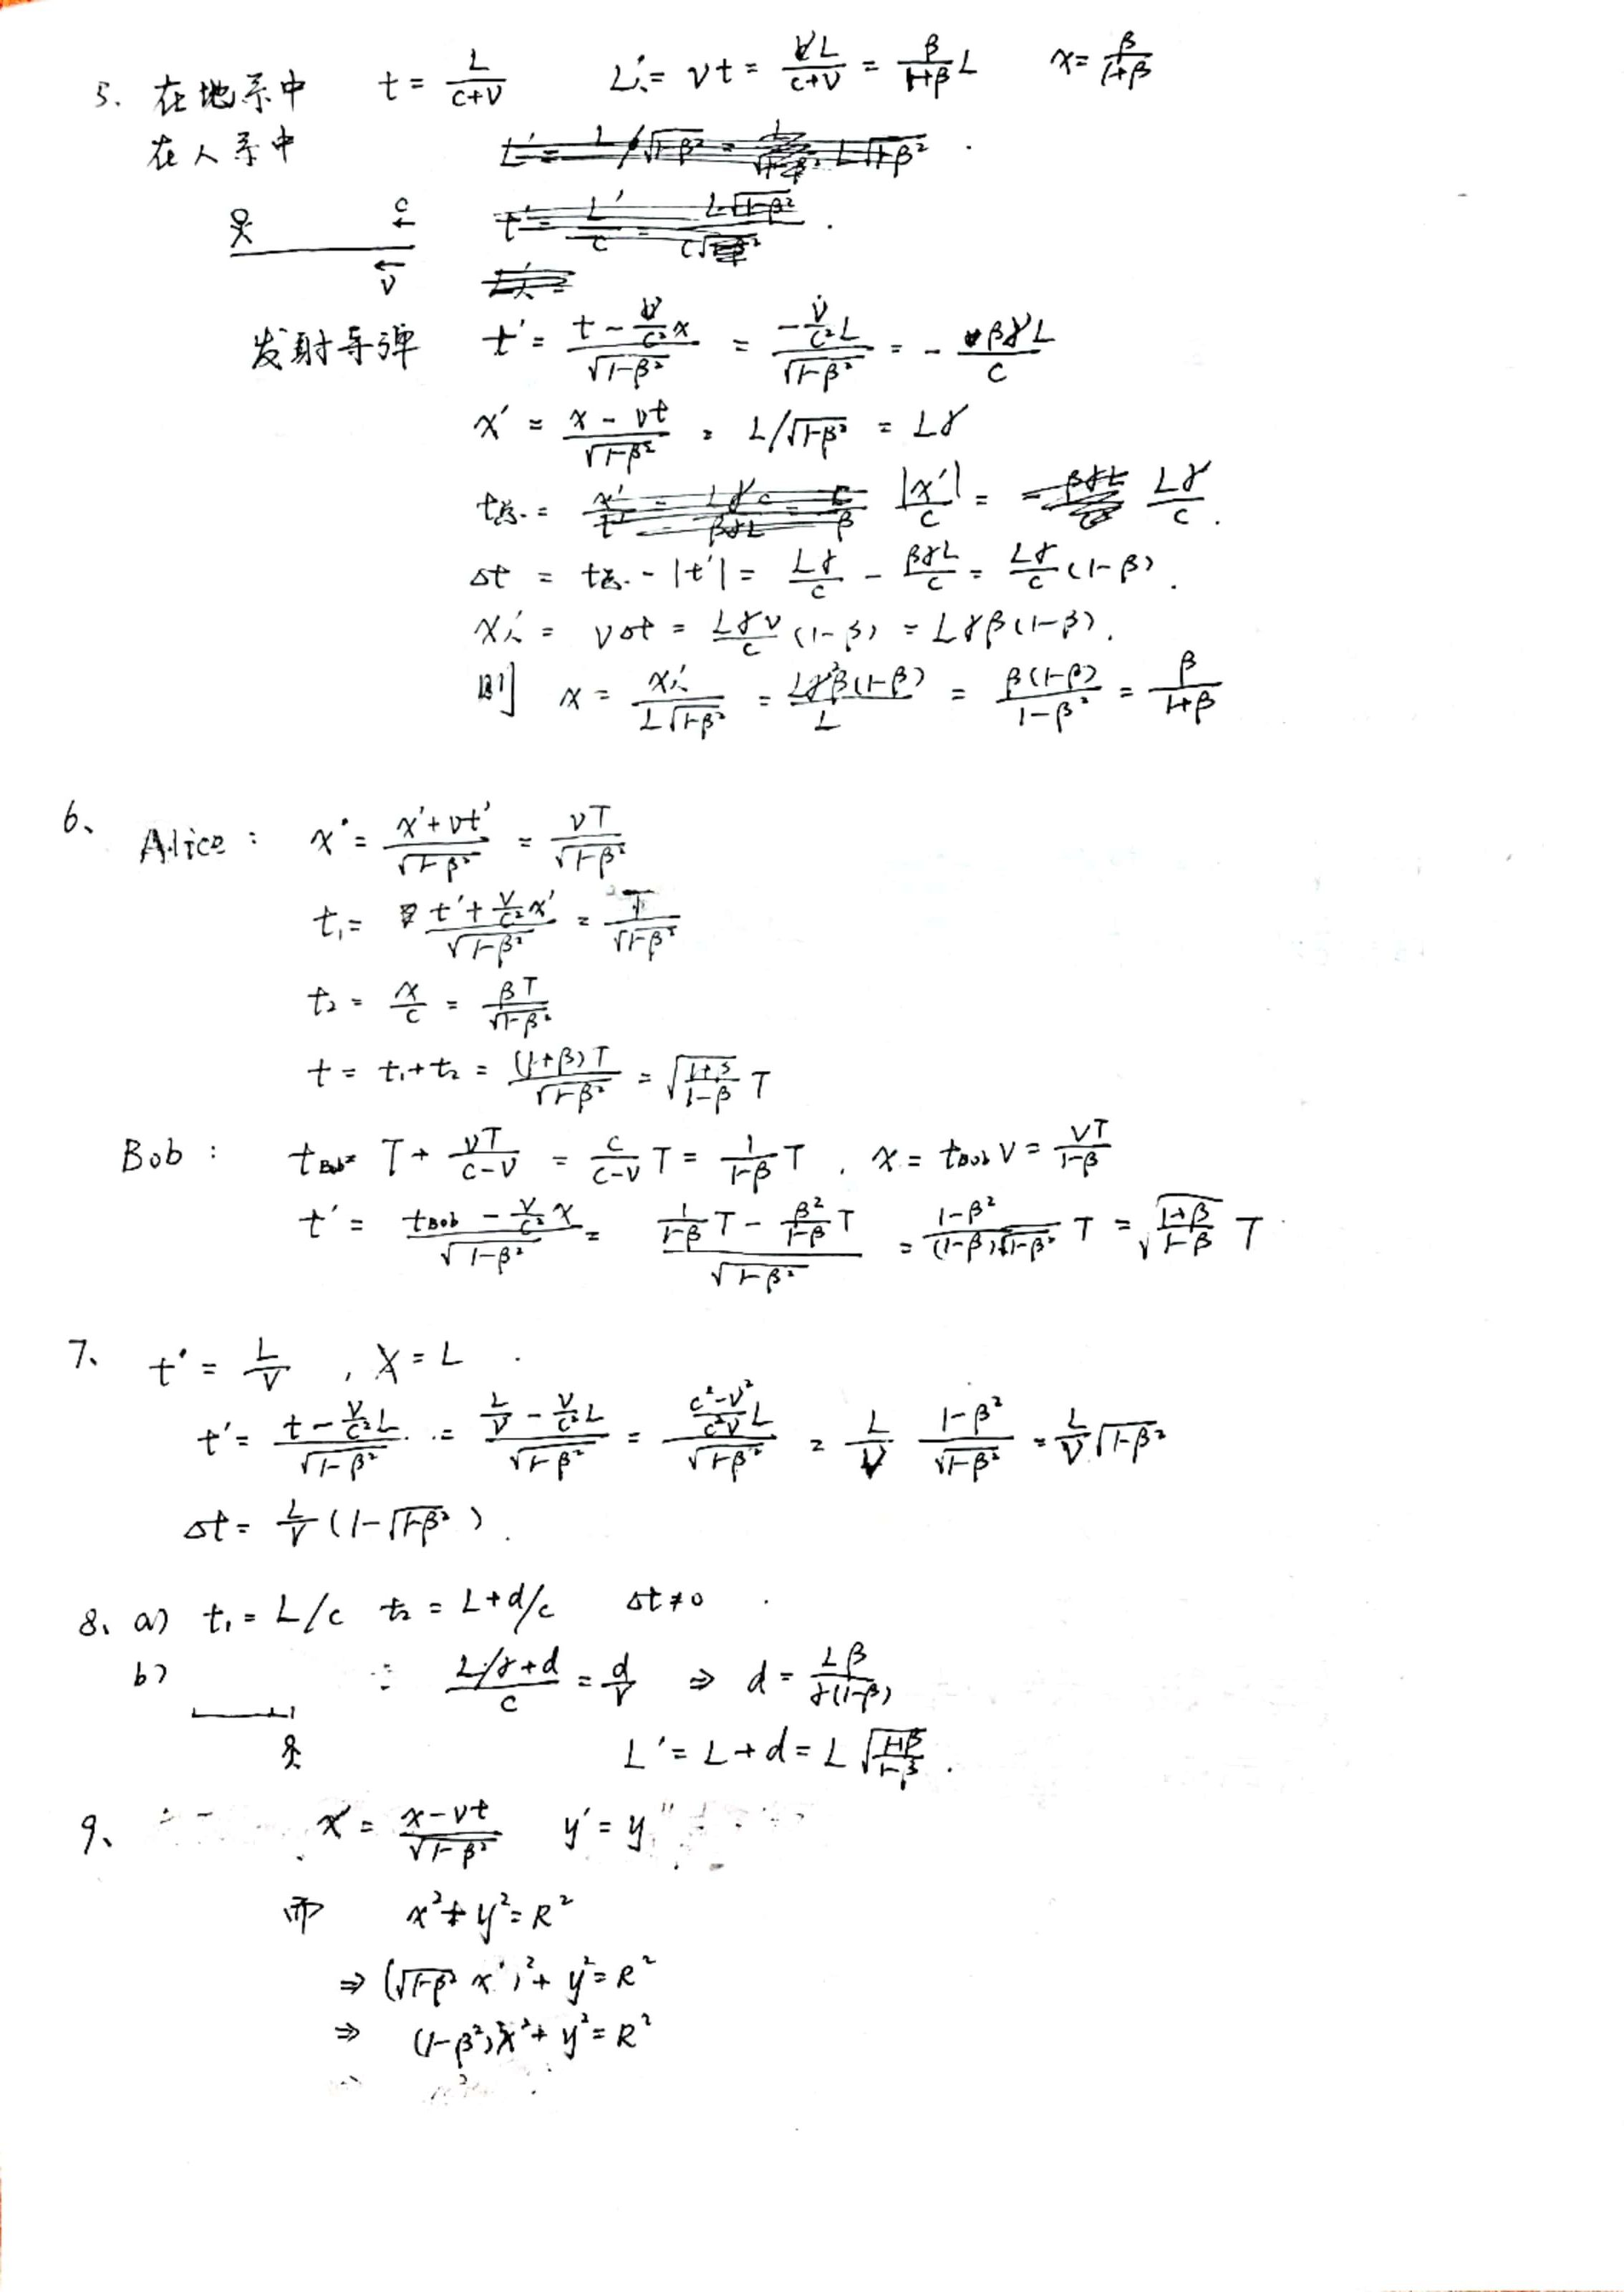 5. 在地系中 t = L/(c+v) L人' = vt = vL/(c+v) = β/(1+β) L x = β/(1+β)
在人系中
c
v
发射导弹 t' = (t - v/c² x)/√(1-β²) = (-v/c² L)/√(1-β²) = - βγL/c
x' = (x - vt)/√(1-β²) = L/√(1-β²) = Lγ
= |x'|/c = Lγ/c .
Δt = - |t'| = Lγ/c - βγL/c = Lγ/c (1-β) .
x人' = vΔt = Lγv/c (1-β) = Lγβ(1-β) .
则 x = x人'/(L√(1-β²)) = Lγ²β(1-β)/L = β(1-β)/(1-β²) = β/(1+β)
6、 Alice : x = (x'+vt')/√(1-β²) = vT/√(1-β²)
t₁ = (t' + v/c² x')/√(1-β²) = T/√(1-β²)
t₂ = x/c = βT/√(1-β²)
t = t₁+t₂ = (1+β)T/√(1-β²) = √((1+β)/(1-β)) T
Bob : tBob = T + vT/(c-v) = c/(c-v) T = 1/(1-β) T , x = tBob v = vT/(1-β)
t' = (tBob - v/c² x)/√(1-β²) = (1/(1-β) T - β²/(1-β) T)/√(1-β²) = (1-β²)/((1-β)√(1-β²)) T = √((1+β)/(1-β)) T
7、 t' = L/v , X = L .
t' = (t - v/c² L)/√(1-β²) = (L/v - v/c² L)/√(1-β²) = ((c²-v²)/(c²v) L)/√(1-β²) = L/v (1-β²)/√(1-β²) = L/v √(1-β²)
Δt = L/v (1-√(1-β²)) .
8、 a) t₁ = L/c t₂ = L+d/c Δt≠0 .
b) ∵ (L/γ+d)/c = d/v ⇒ d = Lβ/(γ(1-β))
L' = L+d = L √((1+β)/(1-β)) .
9、 x' = (x-vt)/√(1-β²) y' = y
而 x²+y² = R²
⇒ (√(1-β²) x')² + y² = R²
⇒ (1-β²)x'² + y² = R²